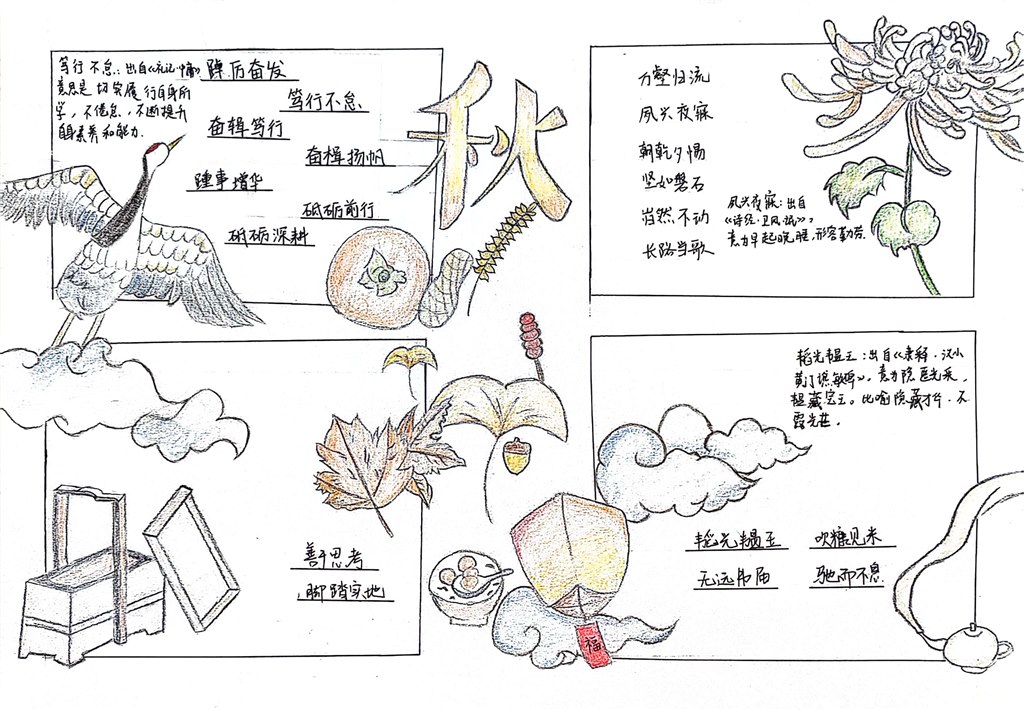 笃行不怠：出自《礼记·中庸》
意思是 切实履 行自身所
学，不倦怠，不断提升
自身素养和能力.
踔厉奋发
笃行不怠
奋楫笃行
奋楫扬帆
踵事增华
砥砺前行
砥砺深耕
秋
万壑归流
夙兴夜寐
朝乾夕惕
坚如磐石
岿然不动
长路当歌
夙兴夜寐：出自
《诗经·卫风·氓》，
意为早起晚睡，形容勤劳.
善于思考
脚踏实地
福
韬光韫玉：出自《隶释·汉小
黄门谯敏碑》，意为隐匿光采，
韫藏宝玉。比喻隐藏才华，不
露光芒.
韬光韫玉
吹糠见米
无远弗届
驰而不息